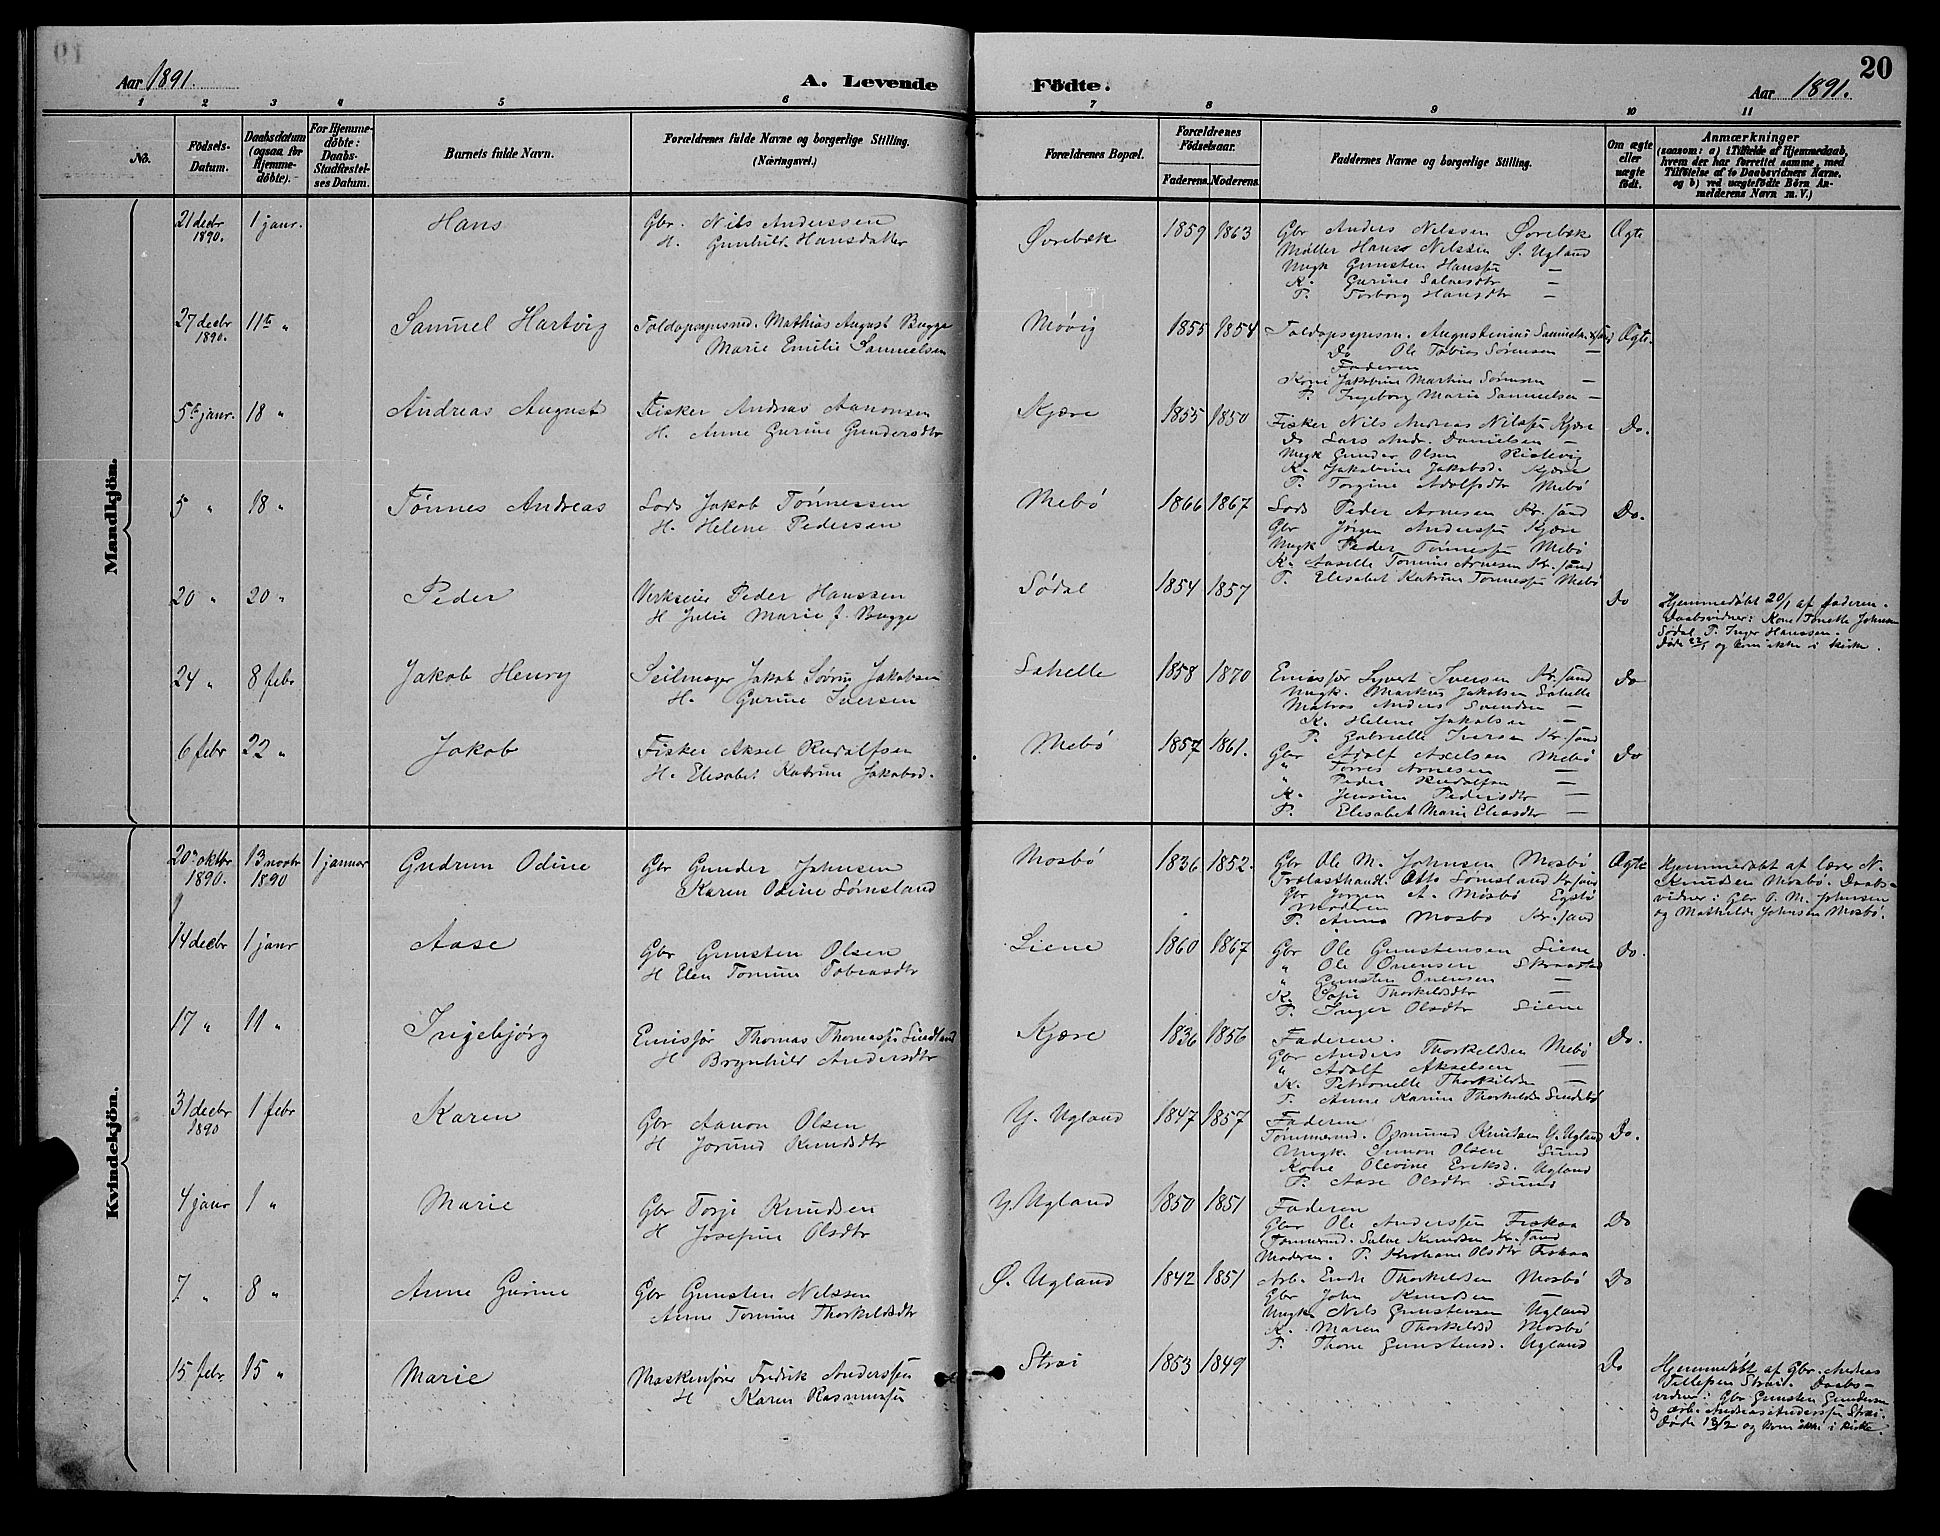 Aar 1891.
A. Levende
Födte.
Aar 1891.
20
1 2 3 4 5 6 7 8 9 10 11
No.
Födsels-Datum.
Daabsdatum (ogsaa for Hjemmedöbte).
For Hjemmedöbte: Daabs-Stadfæstelses Datum.
Barnets fulde Navn.
Forældrenes fulde Navne og borgerlige Stilling.
(Næringsvei.)
Forældrenes Bopæl.
Forældrenes Födselsaar.
Faderens. Moderens.
Faddernes Navne og borgerlige Stilling.
Om ægte eller uægte födt.
Anmærkninger
(saasom: a) i Tilfælde af Hjemmedaab, hvem der har forrettet samme, med Tilföielse af to Daabsvidners Navne, og b) ved uægtefödte Börn Anmelderens Navn m. V.)
Mandkjön.
21 decbr 1890. 1 janr. Hans
Gbr. Nils Anderssen
H. Gunhild Hansdatter
Øvrebæk 1859 1863
Gbr Anders Nilssen Øvrebæk
Møller Hans Nilssen Ø. Ugland
Ungk Gunsten Hanssen —
K. Gurine Salvesdtr —
P. Torborg Hansdtr —
Ægte
27 decbr 1890. 11te " Samuel Hartvig
Toldopsynsmd. Mathias August Bugge
Marie Emilie Samuelsen
Movig 1855 1854
Toldopsynsm. Augustinus Samuelsen
Do Ole Tobias Sørensen —
Faderen
Kone Jakobine Martine Sørensen —
P. Ingeborg Marie Samuelsen —
Ægte.
5te janr. 18 " Andreas August
Fisker Andreas Aanonsen
H. Anne Gurine Gundersdtr
Kjære 1855 1850
Fisker Nils Andreas Nilssen Kjære
Do Lars Andr. Danielsen —
Ungk Gunder Olsen
K. Jakobine Jakobsd. Kjære
P. Torgine Adolfsdtr Mebø
Do.
5 " 18 " Tønnes Andreas
Lods Jakob Tønnessen
H. Helene Pedersen
Mebø 1866 1867
Lods Peder Arnesen Kr.sand
Gbr Jørgen Anderssen Kjære
Ungk Peder Tønnessen Mebø
K. Aaselle Tomine Arnesen Kr.sand
P. Elisabet Katrine Tønnessen Mebø
Do.
20 " 20 " Peder
Verkseier Peder Hanssen
H Julie Marie f. Bugge
Sødal 1854 1857
Do
Hjemmedøbt 20/1 af faderen.
Daabsvidner: Kone Tonette Johnsen
Sødal P. Inger Hanssen.
Døde 22/1 og kom ikke i kirke.
24 " 8 febr Jakob Henry
Seilmager Jakob Sørus Jakobsen
H. Gurine Iversen
Lahelle 1858 1870
Emissær Syvert Iversen Kr.sand
Ungk. Markus Jakobsen Lahelle
Matros Anders Svendsen —
K. Helene Jakobsen —
P. Gabrielle Iversen Kr.sand
Do
6 febr 22 " Jakob
Fisker Aksel Rudolfsen
H. Elisabet Katrine Jakobsd.
Mebø 1857 1861.
Gbr Adolf Axelsen Mebø
" Torres Arnesen —
" Peder Rudolfsen —
K. Jensine Pedersdtr —
P. Elisabet Marie Eliasdtr —
Do
Kvindekjön.
20de oktbr 1890. 13 novbr 1890 1 januar Gudrun Odine
Gbr Gunder Johnsen
Karen Odine Sørnsland
Mosbø 1836 1852.
Gbr Ole M. Johnsen Mosbø
Trælasthandl. Otto Sømsland Kr.sand
Gbr Jørgen A. Mosbø Egsbø
Moderen
P. Anna Mosbø Kr.sand
Ægte
Hjemmedøbt af lærer N.
Knudsen Mosbø. Daabs-
vidner: Gbr O. M. Johnsen
og Mathilde Johnsen Mosbø.
14 decbr 1 janr Aase
Gbr Gunsten Olsen
H Elen Tomine Tobiasdtr
Liene 1860 1867
Gbr Ole Gunstensen Liene
" Ole Onensen Skraastad
" Gunsten Onensen —
K. Sofie Thorkildsdtr —
P. Inger Olsdtr Liene
Do.
17 " 11 " Ingebjørg
Emissær Thomas Thomassen Lindland
H Brynhild Andersdtr
Kjære 1836 1856
Faderen.
Gbr Anders Thorkeldsen Mebø
" Adolf Akselsen —
K. Petronelle Thorkildsen —
P. Anne Karine Thorkildsen
Do.
31 decbr 1890 1 febr Karen
Gbr Aanon Olsen
H Jorund Knudsdtr
Y. Ugland 1847 1857
Faderen
Tømmermd. Osmund Knutsen Y. Ugland
Ungk. Simon Olsen Sund
Kone Olevine Eriksd. Ugland
P. Aase Olsdtr. Sund
Do.
4 janr 1 " Marie
Gbr Torje Knudsen
H Josefine Olsdtr
Y. Ugland 1850 1851
Faderen
Gbr Ole Anderssen Fiskaa
Tømmermd. Salve Knudsen Kr.sand
Moderen. P. Kristiane Olsdtr Fiskaa
Do
7 " 8 " Anne Gurine
Gbr Gunsten Nilssen
Anne Tomine Thorkeldsdtr
Ø. Ugland 1842 1851
Arb. Endr Thorkeldsen Mosbø
Gbr John Knudsen —
Ungk Nils Gunstensen Ugland
K. Maren Thorkildsd Mosbø
P. Thone Gunstensd. Ugland
Do
15 febr 15 " Marie
Maskinfører Fredrik Anderssen
H Karen Rasmussen
Strai 1853 1849
Do
Hjemmedøbt af Gbr. Andreas
Tellefsen Strai. Daabs-
vidner: Gbr Gunsten Gundersen
og arb. Andreas Anderssen Strai.
Døde 18/2 og kom ikke i kirke.